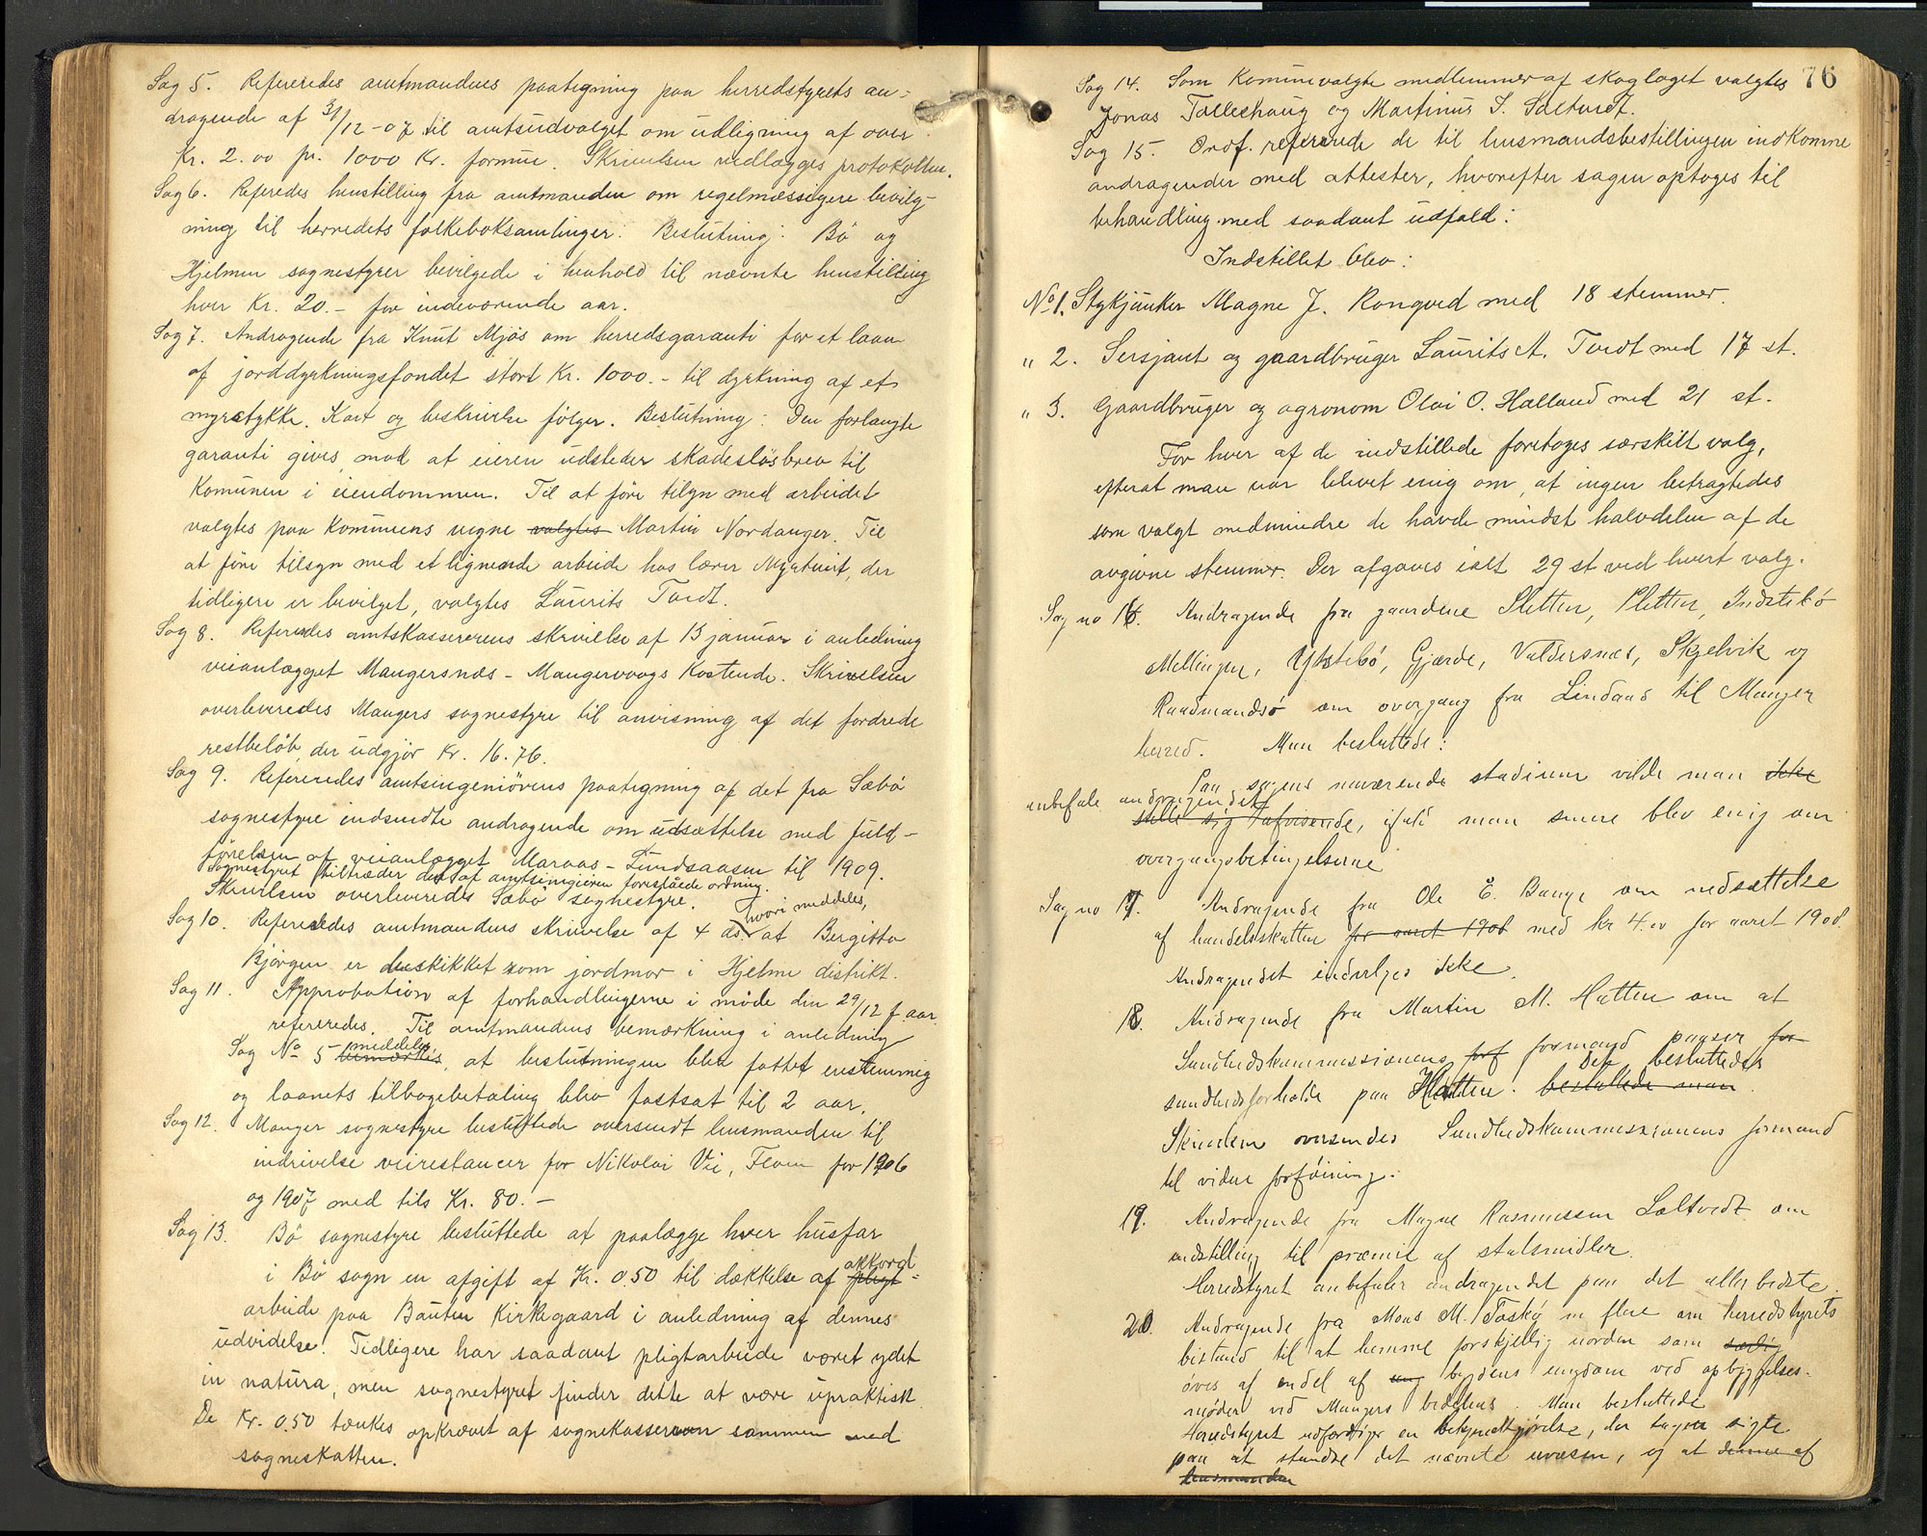 Sag 5. Refereredes amtmandens paategning paa herredstyrets an-
dragende af 31/12-07 til amtsudvalget om udligning af over
Kr. 2.00 pr. 1000 Kr. formue. Skrivelsen vedlægges protokollen.
Sag 6. Referedes henstilling fra amtmanden om regelmæssigere bevilg-
ning til herredets folkeboksamlinger. Beslutning: Bö og
Hjelmen sognestyrer bevilgede i henhold til nævnte henstilling
hver Kr. 20.- for indeværende aar.
Sag 7. Andragende fra Knut Mjös om herredsgaranti for et laan
af jorddyrkningsfondet stort Kr. 1000.- til dyrkning af et
myrstykke. Kart og beskrivelse fölger. Beslutning: Den forlangte
garanti gives mod at eieren udsteder skadeslösbrev til
Komunen i eiendommen. Til at före tilsyn med arbeidet
valgtes paa Kommunens vegne valgtes Martin Nordanger. Til
at före tilsyn med et lignende arbeide hos lærer Myrtveit, der
tidligere er bevilget, valgtes Laurits Tvedt.
Sag 8. Referedes amtskassererens skrivelse af 13 januar i anledning
veianlægget Mangersnæs - Mangervaags Kostende. Skrivelsen
overleveredes Mangers sognestyre til anvisning af det fordrede
restbelöb, der udgjör Kr. 16.76.
Sag 9. Refereredes amtsingeniörens paategning af det fra Sæbö
sognestyre indsendte andragende om udsættelse med fuld-
förelsen af veianlægget Maraas - Fundsaasen til 1909.
Sognestyret tiltræder den af amtsingieren foreslåede ordning.
Skrivelsen overleveredes Sæbö sognestyre.
hvori meddeles,
Sag 10. Refereredes amtmandens skrivelse af 4 ds. at Bergitta
Björgen er beskikket som jordmor i Hjelme distrikt.
Sag 11. Approbation af forhandlingerne i möde den 29/12 f. aar
refereredes. Til amtmandens bemærkning i anledning
meddeles
Sag No 5 bemærkes, at beslutningen blev fattet enstemmig
og laanets tilbagebetaling blev fastsat til 2 aar.
Sag 12. Manger sognestyre besluttede oversendt lensmanden til
indrivelse veirestancer for Nikolai Vie, Flem for 1906
og 1907 med tils Kr. 80.-
Sag 13. Bö sognestyre besluttede at paalægge hver husfar
akkord
i Bö sogn en afgift af Kr. 0.50 til dækkelse af pligt-
arbeide paa Bauten Kirkegaard i anledning af dennes
udvidelse. Tidligere har saadant pligtarbeide været ydet
in natura, men sognestyret finder dette at være upraktisk.
De Kr. 0.50 tænkes opkrævet af sognekassereren sammen med
sogneskatten.
76
Sag 14. Som Komunevalgte medlemmer af skoglaget valgtes
Jonas Tolleshaug og Martinus J. Sæltvedt.
Sag 15. Ordf. refererede de til lensmandsbestillingen indkomne
andragender med attester, hvorefter sagen optoges til
behandling med saadant udfald:
Indstillet blev:
No 1. Stykjunker Magne J. Rongved med 18 stemmer.
" 2. Sersjant og gaardbruger Laurits A. Tvedt med 17 st.
" 3. Gaardbruger og agronom Olai O. Halland med 21 st.
For hver af de indstillede foretoges særskilt valg,
efterat man var blevet enig om, at ingen betragtedes
som valgt medmindre de havde mindst halvdelen af de
avgivne stemmer. Der afgaves ialt 29 st ved hvert valg.
Sag no 16. Andragende fra gaardene Sletten, Pletten, Indstebö
Mellingen, Ytstebö, Gjærde, Valdersnæs, Skjelvik og
Raadmandsö om overgang fra Lindaas til Manger
herred. Man besluttede:
Paa sagens nuværende stadium vilde man ikke
anbefale andragendet
stille sig afvisende, ifald man senere blev enig om
overgangsbetingelserne
Sag no 17. Andragende fra Ole E. Bange om nedsættelse
af handelsskatten for aaret 1908 med kr 4.00 for aaret 1908.
Andragendet indvilges ikke.
18. Andragende fra Martin M. Hatten om at
Sundhedskommissionens formand paaser for
det besluttedes
sundhedsforholde paa Hatten. besluttede man
Skrivelsen oversendes Sundhedskommissionens formand
til videre forföining.
19. Andragende fra Magne Rasmussen Sæltvedt om
indstilling til præmie af statsmidler.
Herredstyret anbefaler andragendet paa det allerbedste.
20. Andragende fra Mons M. Toskö m flere om herredstyrets
bistand til at hemme forskjellig uorden som særlig
öves af endel af ung bygdens ungdom ved opbyggelses-
möder ved Mangers bedehus. Man besluttede
Herredstyret udfærdiger en bekjendtgjörelse, der tager sigte
paa at standse det nævnte uvæsen, og at denne af
lensmanden